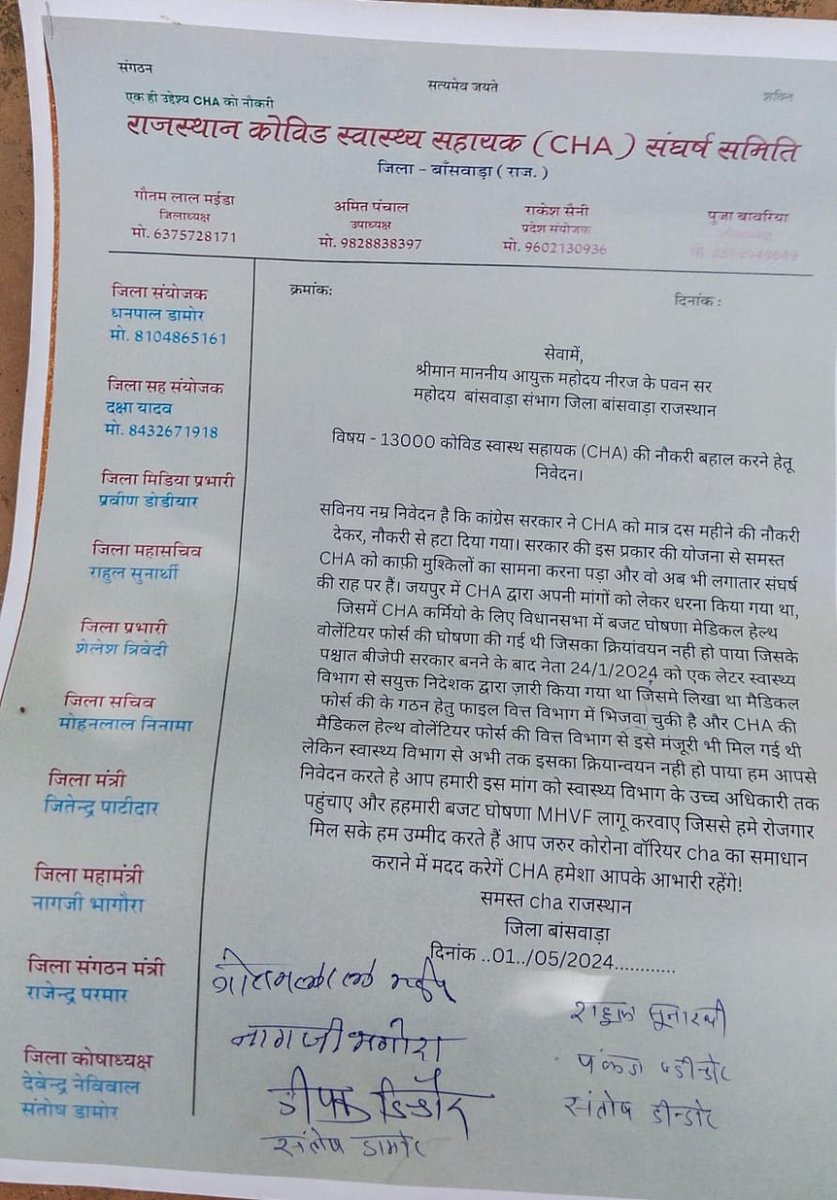 संगठन
सत्यमेव जयते
शक्ति
एक ही उद्देश्य CHA को नौकरी
राजस्थान कोविड स्वास्थ्य सहायक (CHA) संघर्ष समिति
जिला - बाँसवाड़ा ( राज. )
गौतम लाल मईडा
जिलाध्यक्ष
मो. 6375728171
अमित पंचाल
उपाध्यक्ष
मो. 9828838397
राकेश सैनी
प्रदेश संयोजक
मो. 9602130936
पुजा बावरिया
जिला संयोजक
धनपाल डामोर
मो. 8104865161
जिला सह संयोजक
दक्षा यादव
मो. 8432671918
जिला मिडिया प्रभारी
प्रवीण डोडीयार
जिला महासचिव
राहुल सुनार्थी
जिला प्रभारी
शेलेश त्रिवेदी
जिला सचिव
मोहनलाल निनामा
जिला मंत्री
जितेन्द्र पाटीदार
जिला महामंत्री
नागजी भागौरा
जिला संगठन मंत्री
राजेन्द्र परमार
जिला कोषाध्यक्ष
देवेन्द्र नेविवाल
संतोष डामोर
क्रमांकः
दिनांक :
सेवामें,
श्रीमान माननीय आयुक्त महोदय नीरज के पवन सर
महोदय बांसवाड़ा संभाग जिला बांसवाड़ा राजस्थान
विषय - 13000 कोविड स्वास्थ सहायक (CHA) की नौकरी बहाल करने हेतू
निवेदन।
सविनय नम्र निवेदन है कि कांग्रेस सरकार ने CHA को मात्र दस महीने की नौकरी
देकर, नौकरी से हटा दिया गया। सरकार की इस प्रकार की योजना से समस्त
CHA को काफ़ी मुश्किलों का सामना करना पड़ा और वो अब भी लगातार संघर्ष
की राह पर हैं। जयपुर में CHA द्वारा अपनी मांगों को लेकर धरना किया गया था,
जिसमें CHA कर्मियो के लिए विधानसभा में बजट घोषणा मेडिकल हेल्थ
वोलेंटियर फोर्स की घोषणा की गई थी जिसका क्रियांवयन नही हो पाया जिसके
पश्चात बीजेपी सरकार बनने के बाद नेता 24/1/2024 को एक लेटर स्वास्थ्य
विभाग से सयुक्त निदेशक द्वारा ज़ारी किया गया था जिसमे लिखा था मैडिकल
फोर्स की के गठन हेतु फाइल वित्त विभाग में भिजवा चुकी है और CHA की
मैडिकल हेल्थ वोलेंटियर फोर्स की वित्त विभाग से इसे मंजूरी भी मिल गई थी
लेकिन स्वास्थ्य विभाग से अभी तक इसका क्रियान्वयन नही हो पाया हम आपसे
निवेदन करते हे आप हमारी इस मांग को स्वास्थ्य विभाग के उच्च अधिकारी तक
पहुंचाए और हहमारी बजट घोषणा MHVF लागू करवाए जिससे हमे रोजगार
मिल सके हम उम्मीद करते हैं आप जरुर कोरोना वॉरियर cha का समाधान
कराने में मदद करेगें CHA हमेशा आपके आभारी रहेंगे!
समस्त cha राजस्थान
जिला बांसवाड़ा
दिनांक ..01../05/2024............
नागजी भगोरा
दीपक डिन्डोर
संतोष डामोर
राहुल सुनारथी
पंकज डीन्डोर
संतोष डीन्डोर